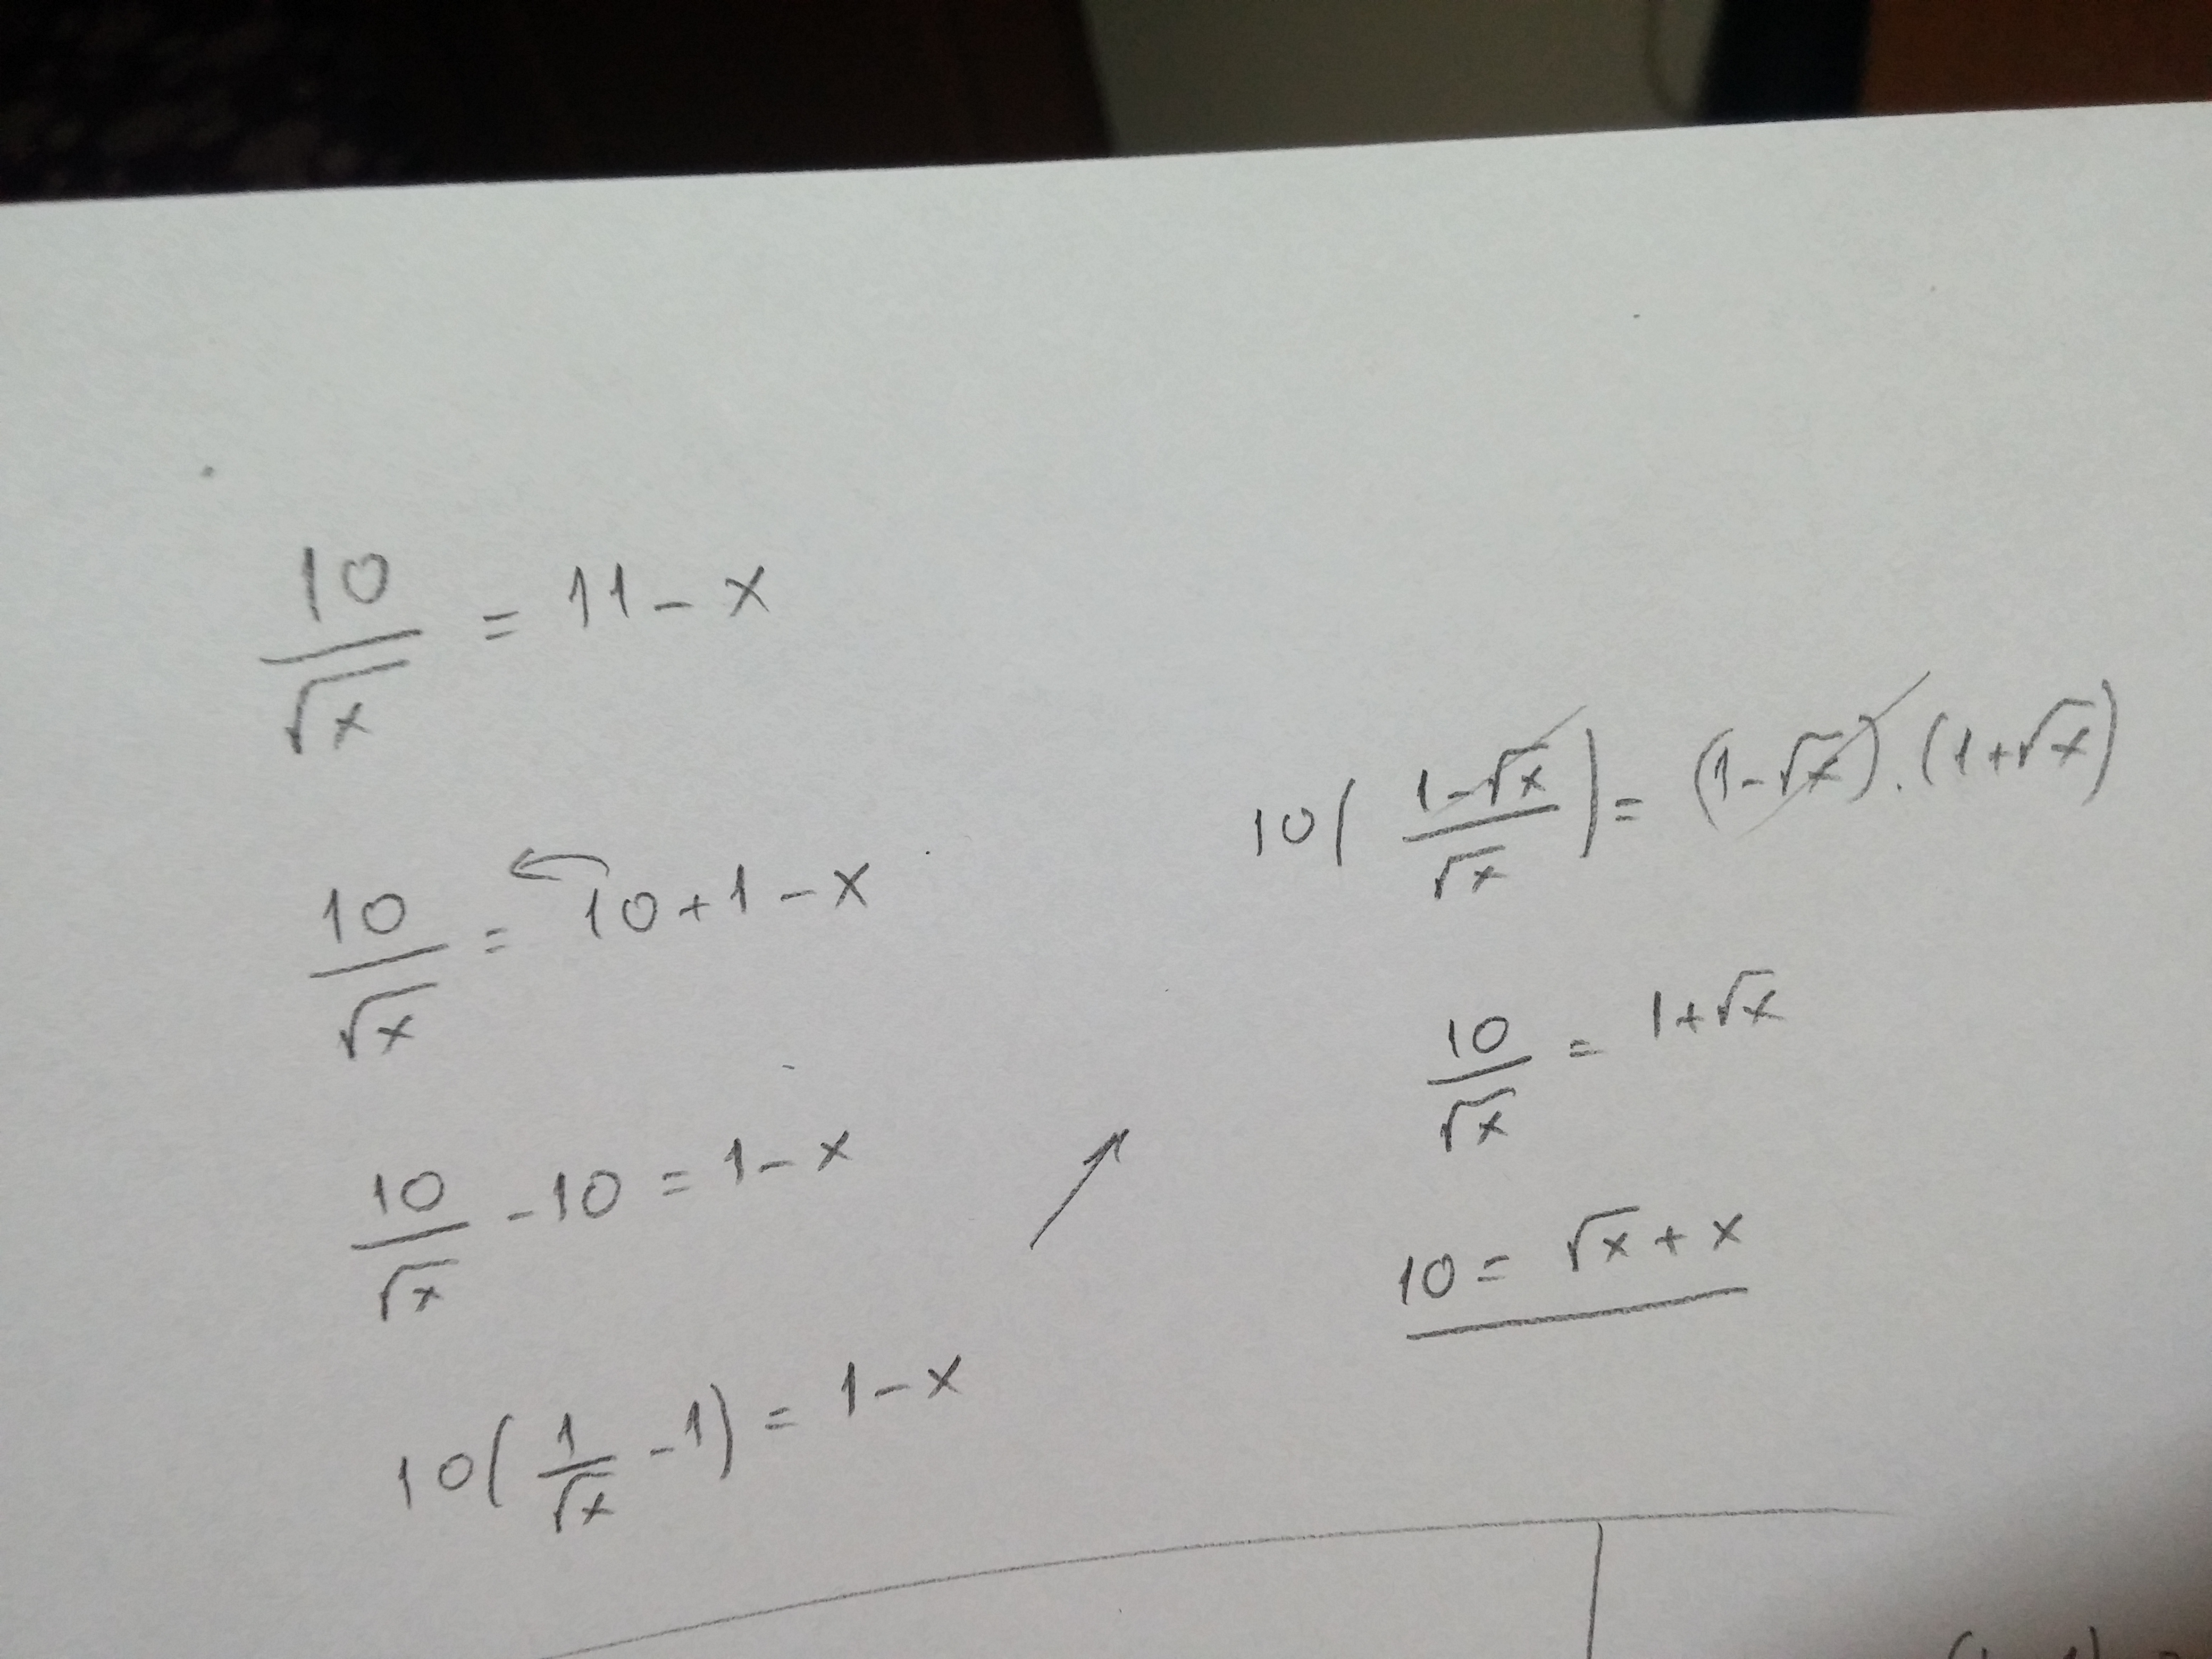 10/√x = 11 - x
10/√x = 10 + 1 - x
10/√x - 10 = 1 - x
10(1/√x - 1) = 1 - x
10((1-√x)/√x) = (1-√x).(1+√x)
10/√x = 1+√x
10 = √x + x